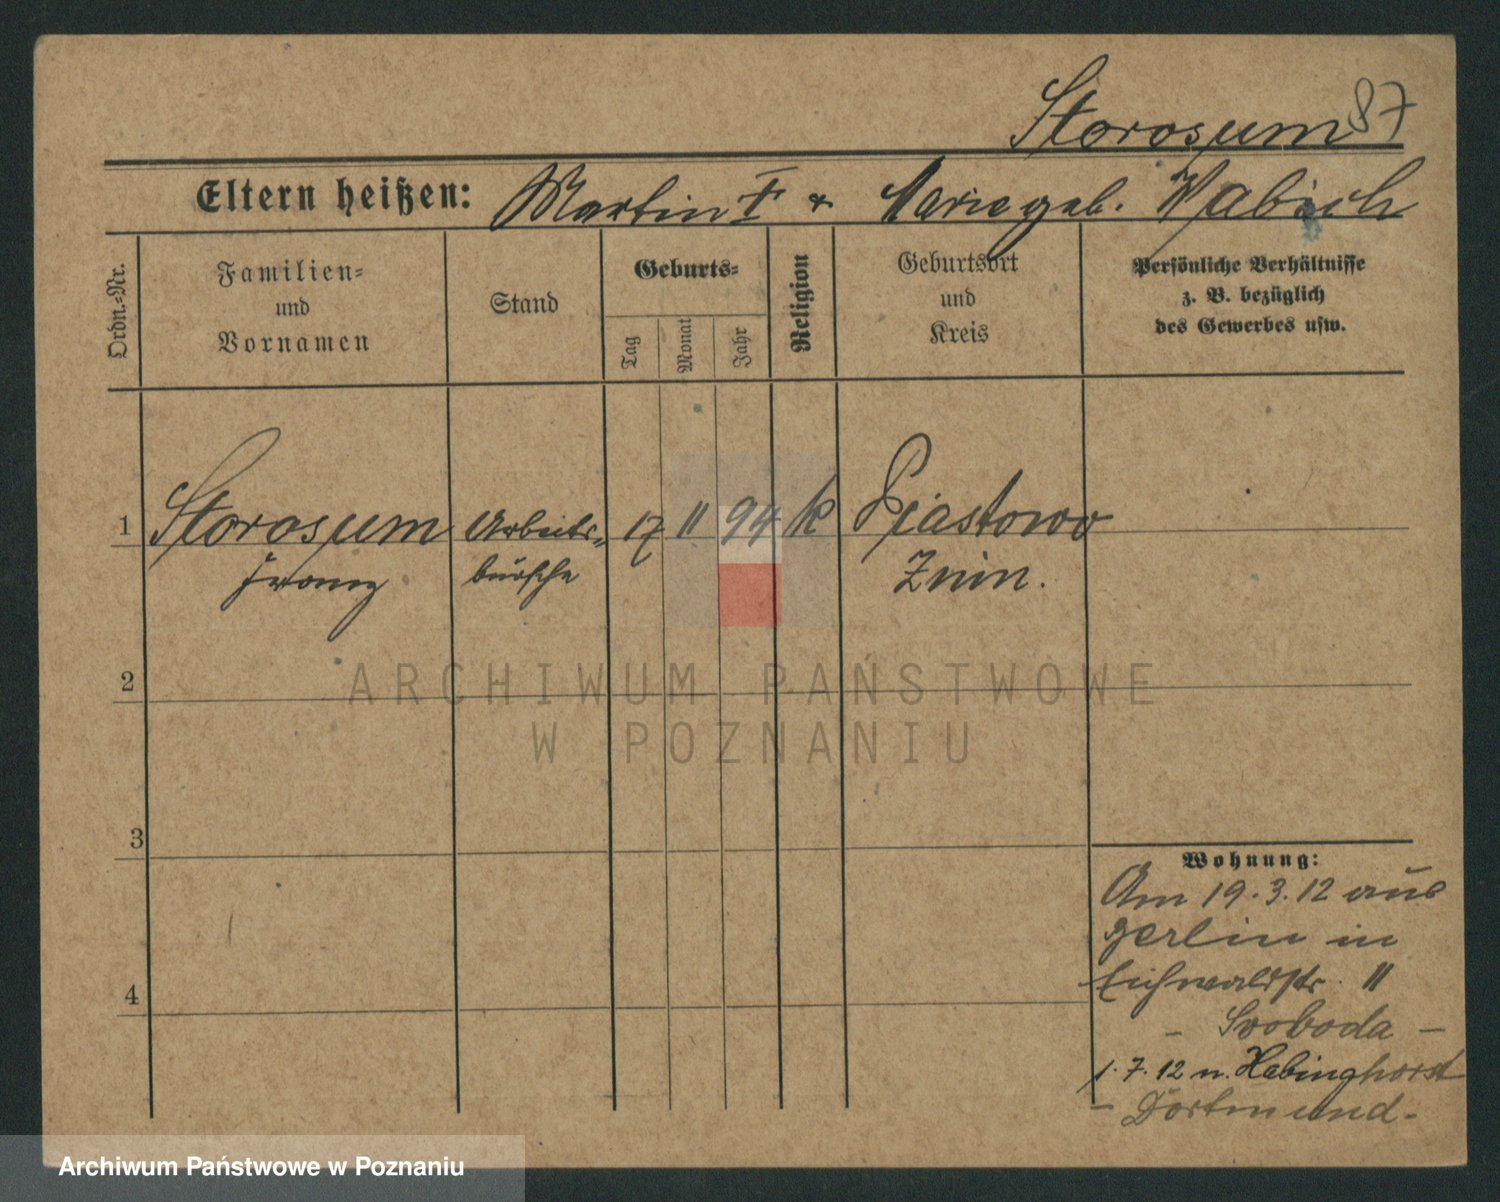 Storosum 87
Eltern heißen: Martin I + Marie geb. Wabich
Ordn.-Nr.
Familien-
und
Vornamen
Stand
Geburts-
Tag
Monat
Jahr
Religion
Geburtsort
und
Kreis
Persönliche Verhältnisse
z. B. bezüglich
des Gewerbes usw.
1 Storosum Arbeits- 17 11 94 k Piastowo
Franz bursche Znin.
2
3
4
Wohnung:
Am 19.3.12 aus
Berlin in
Eichwaldstr. 11
- Svoboda -
1.7.12 n. Habinghorst
- Dortmund -
ARCHIWUM PAŃSTWOWE
W POZNANIU
Archiwum Państwowe w Poznaniu